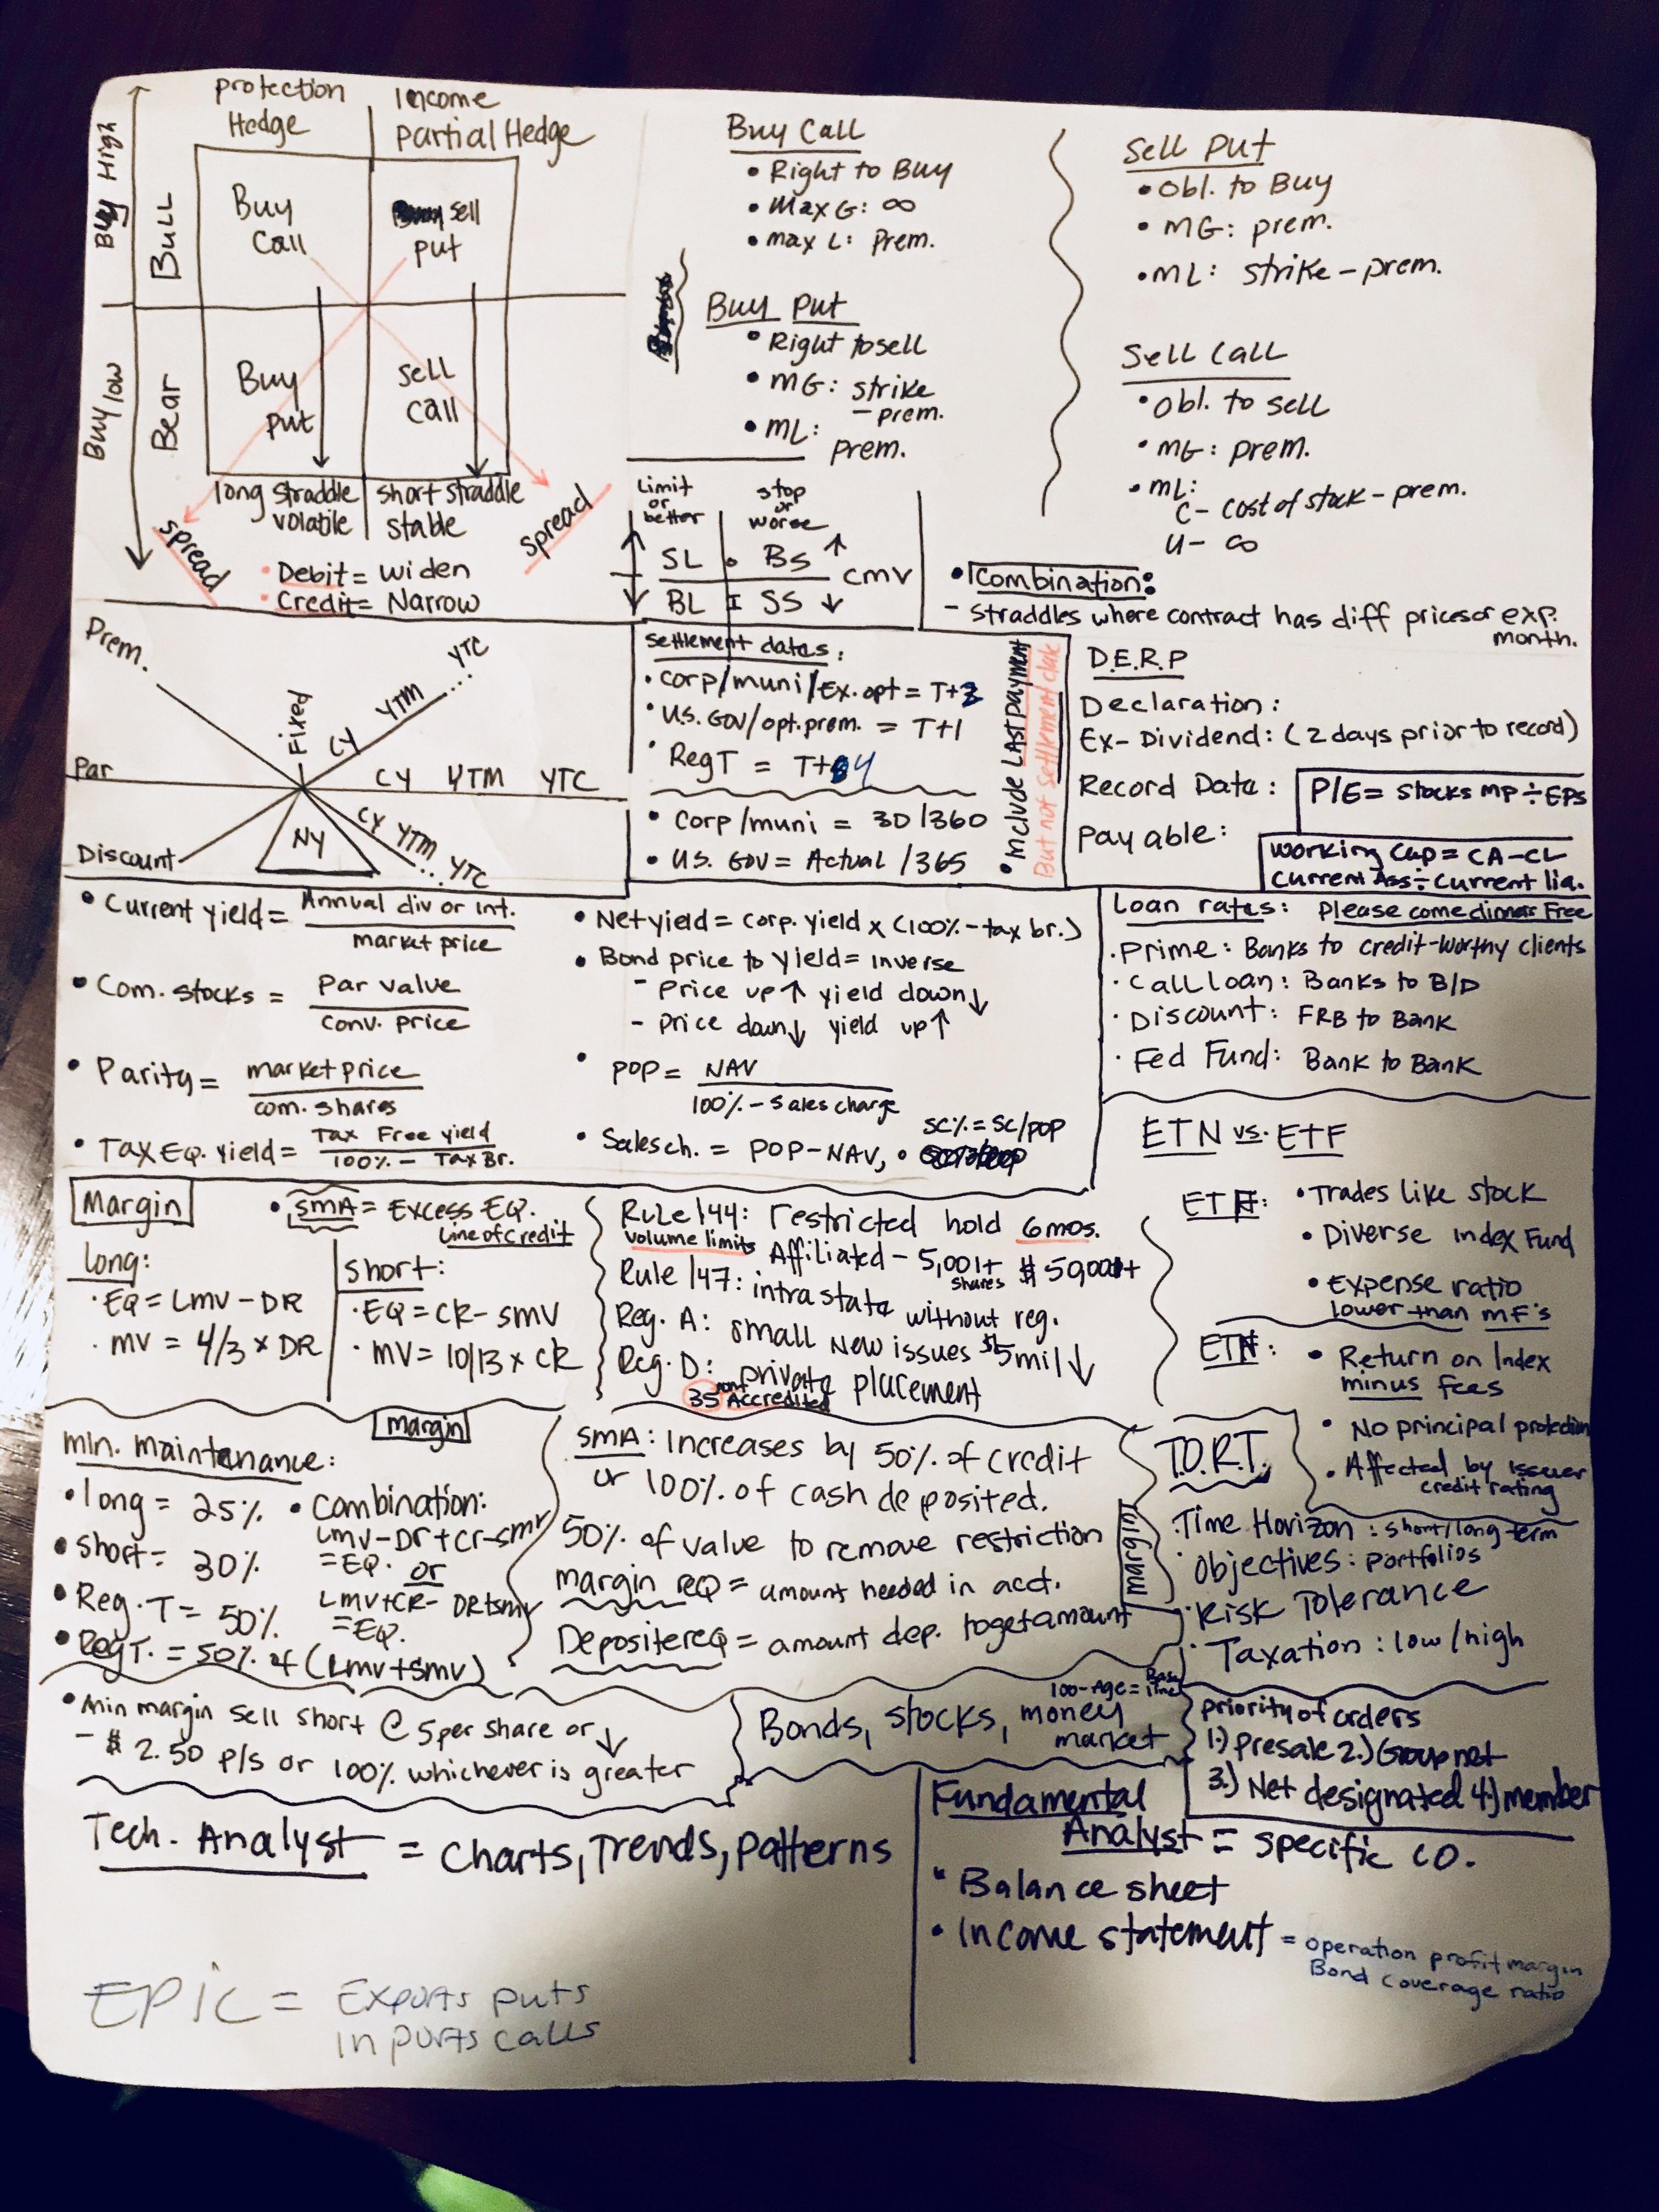 protection
Hedge
Income
partial Hedge
Buy High
Bull
Buy low
Bear
Buy
call
sell
put
Buy
put
sell
call
long straddle
volatile
short straddle
stable
spread
spread
• Debit = widen
• Credit = Narrow
Buy Call
• Right to Buy
• Max G: ∞
• max L: Prem.
Buy Put
• Right to sell
• MG: strike
- prem.
• ML:
prem.
Sell Put
• Obl. to Buy
• MG: prem.
• ML: strike - prem.
Sell Call
• Obl. to sell
• MG: prem.
• ML:
C- cost of stock - prem.
U- ∞
limit
or
better
stop
or
worse
SL • BS ↑
CMV
BL I SS ↓
• Combination:
- straddles where contract has diff prices or exp.
month.
Prem.
Par
Discount
Fixed
NY
CY YTM ... YTC
CY YTM YTC
CY YTM ... YTC
Settlement dates:
• Corp/muni/Ex. opt = T+2
• U.S. Gov/opt. prem. = T+1
• Reg T = T+4
• Corp/muni = 30/360
• U.S. Gov = Actual/365
• Include Last payment
But not settlement date
D.E.R.P
Declaration:
Ex-Dividend: (2 days prior to record)
Record Date:
Payable:
P/E = stocks MP ÷ EPS
Working Cap = CA-CL
Current Ass ÷ Current lia.
• Current yield = Annual div or int.
market price
• Com. stocks = Par value
conv. price
• Parity = market price
com. shares
• Tax EQ. yield = Tax Free yield
100% - Tax Br.
• Net yield = corp. yield x (100% - tax br.)
• Bond price to yield = inverse
- price up ↑ yield down ↓
- price down ↓ yield up ↑
• POP = NAV
100% - sales charge
• Sales ch. = POP-NAV, •
SC% = SC/POP
Loan rates: Please come dinners Free
• Prime: Banks to credit-worthy clients
• Call loan: Banks to B/D
• Discount: FRB to Bank
• Fed Fund: Bank to Bank
ETN vs. ETF
ETF: • Trades like stock
• Diverse index Fund
• Expense ratio
lower than MF's
ETN: • Return on Index
minus fees
• No principal protection
• Affected by issuer
credit rating
Margin
• SMA = Excess EQ.
Line of credit
long:
• EQ = LMV - DR
• MV = 4/3 x DR
short:
• EQ = CR - SMV
• MV = 10/13 x CR
Rule 144: restricted hold 6 mos.
volume limits Affiliated - 5,001+ $50,000+
shares
Rule 147: intrastate without reg.
Reg. A: small New issues $5 mil ↓
Reg. D: private placement
35 non Accredited
Margin
Min. maintenance:
• long = 25%
• short = 30%
• Reg. T = 50%
• Reg T. = 50% of (LMV+SMV)
• Combination:
LMV-DR+CR-SMV
= EQ. or
LMV+CR- DR+SMV
= EQ.
SMA: Increases by 50% of credit
or 100% of cash deposited.
50% of value to remove restriction
margin req = amount needed in acct.
Deposite req = amount dep. to get amount
margin
T.O.R.T.
• Time Horizon: short/long term
• Objectives: portfolios
• Risk Tolerance
• Taxation: low/high
• Min margin sell short @ 5 per share or ↓
- $2.50 p/s or 100% whichever is greater
100-Age = Base line
Bonds, stocks, money
market
priority of orders
1.) presale 2.) Group net
3.) Net designated 4.) member
Tech. Analyst = Charts, Trends, patterns
Fundamental
Analyst = specific co.
• Balance sheet
• Income statement = operation profit margin
Bond coverage ratio
EPIC = Exports puts
Inports calls